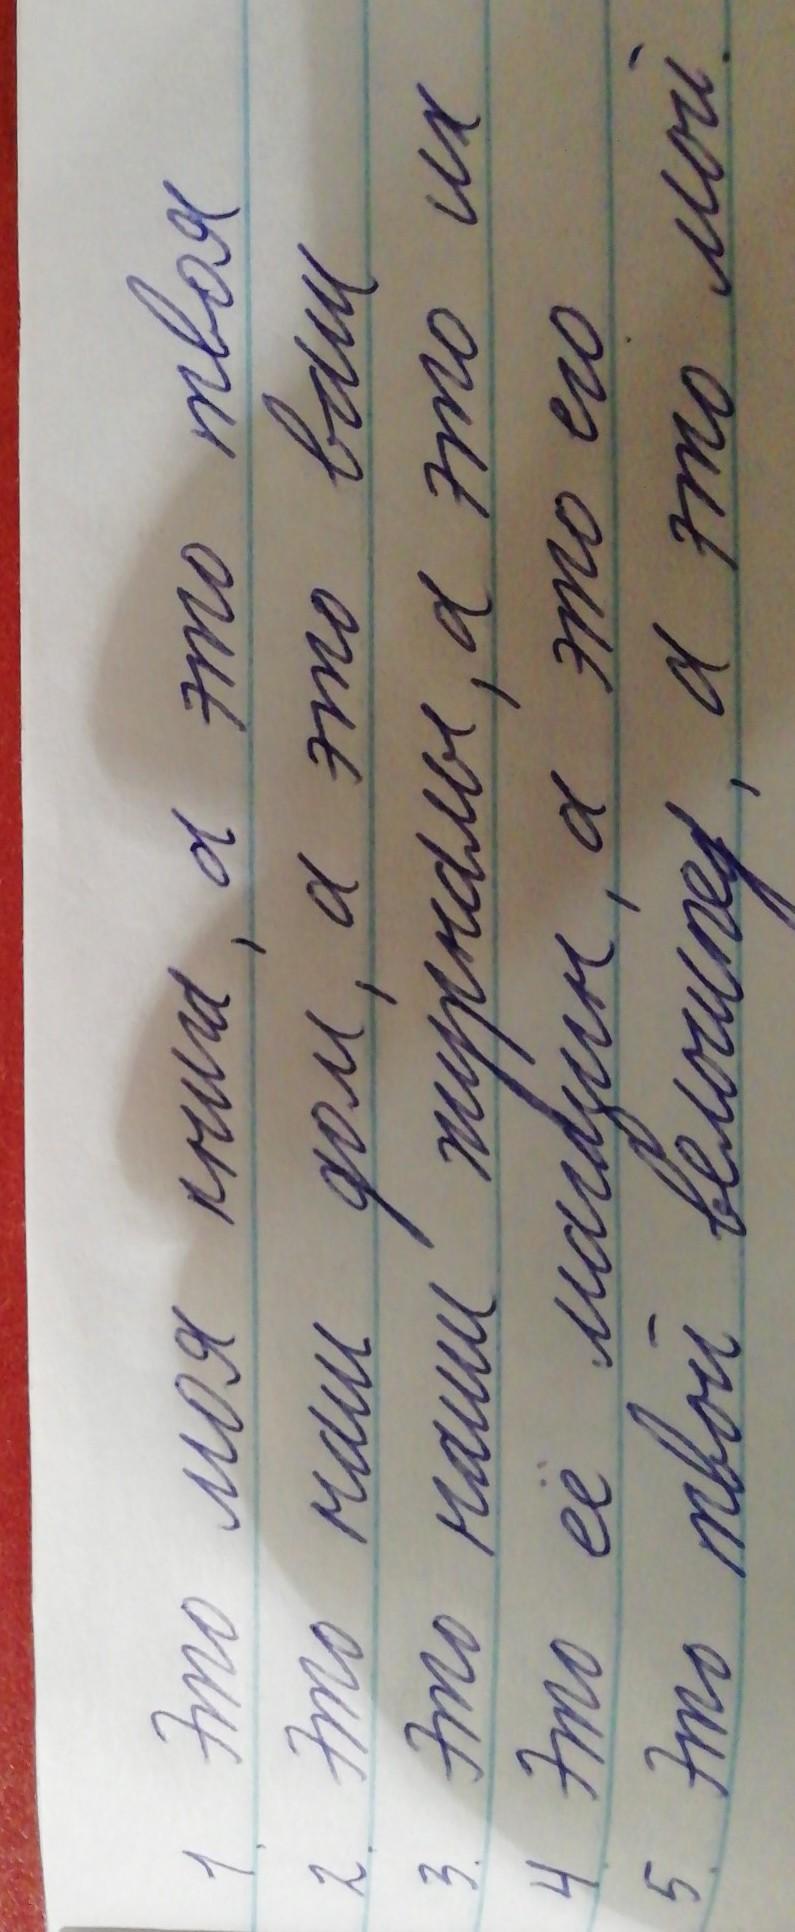 1. Это моя книга, а это твоя
2. Это наш дом, а это ваш
3. Это наши журналы, а это их
4 Это её магазин, а это его
5. Это твой велосипед, а это мой.